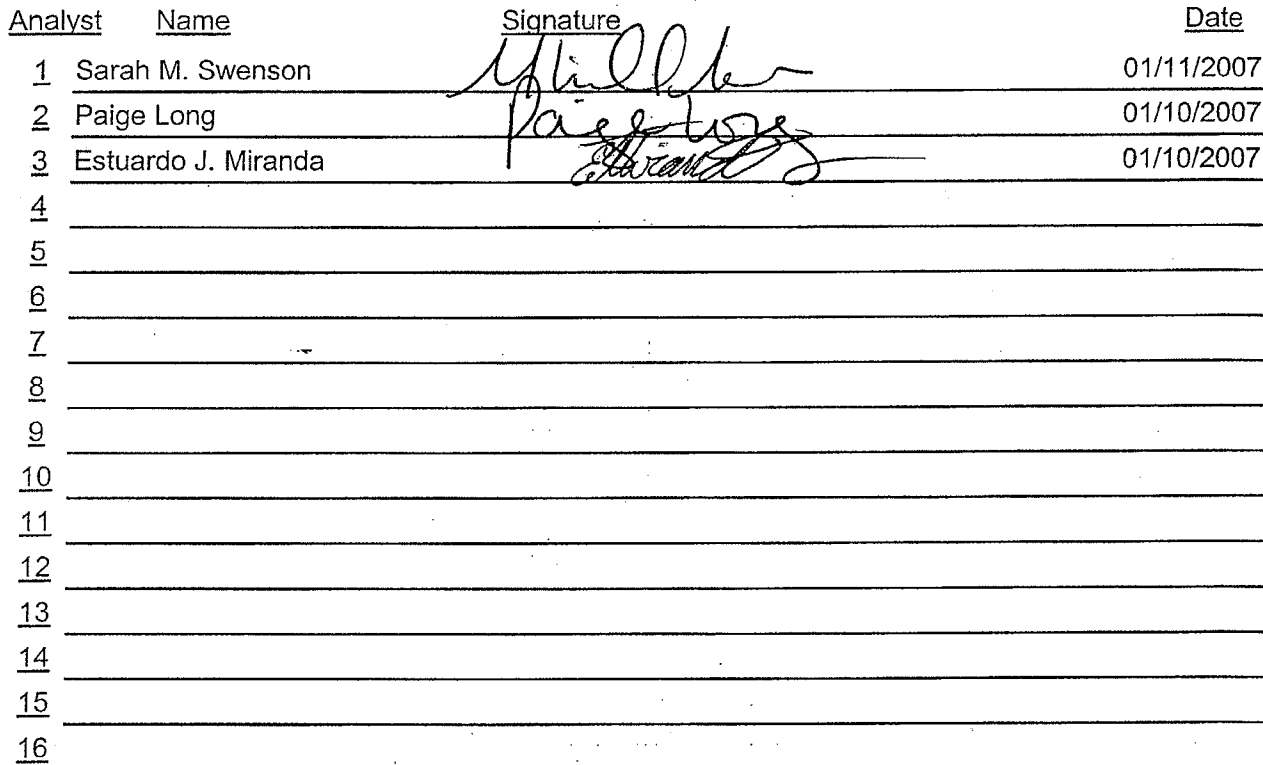 Analyst Name Signature Date
1 Sarah M. Swenson 01/11/2007
2 Paige Long Paige Long 01/10/2007
3 Estuardo J. Miranda EMiranda 01/10/2007
4
5
6
7
8
9
10
11
12
13
14
15
16